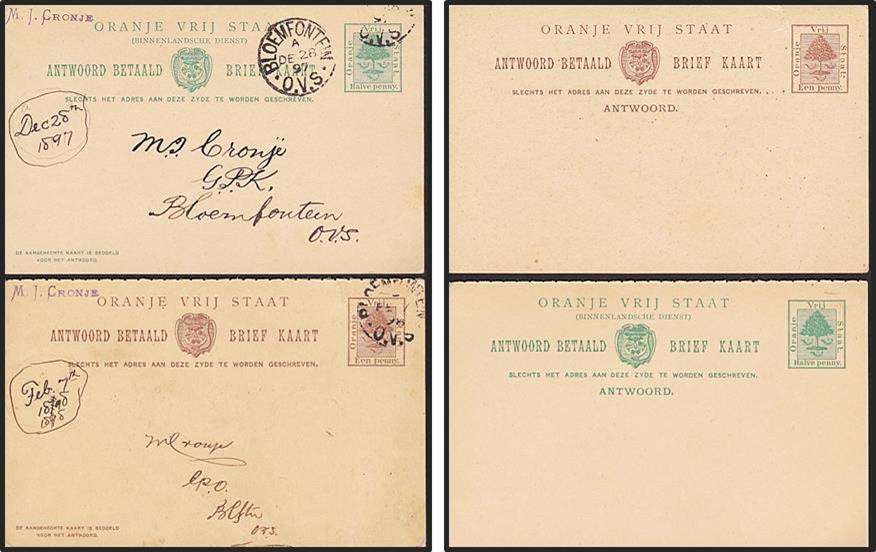 M. J. CRONJE
ORANJE VRIJ STAAT
(BINNENLANDSCHE DIENST)
ANTWOORD BETAALD BRIEF KAART
SLECHTS HET ADRES AAN DEZE ZYDE TE WORDEN GESCHREVEN.
Oranje Vrij Staat.
Halve penny.
BLOEMFONTEIN
A
DE 28
97
O.V.S.
O.V.S.
Dec 28th
1897
M.J. Cronjé
G.P.K.
Bloemfontein
O.V.S.
DE AANGEHECHTE KAART IS BEDOELD
VOOR HET ANTWOORD.
ORANJE VRIJ STAAT
ANTWOORD BETAALD BRIEF KAART
SLECHTS HET ADRES AAN DEZE ZYDE TE WORDEN GESCHREVEN.
ANTWOORD.
Oranje Vrij Staat.
Een penny.
M. J. CRONJE
ORANJE VRIJ STAAT
ANTWOORD BETAALD BRIEF KAART
SLECHTS HET ADRES AAN DEZE ZYDE TE WORDEN GESCHREVEN.
Een penny.
O.V.S.
Feb. 7th
1898
MCronje
G.P.O.
Blftn
O.V.S.
DE AANGEHECHTE KAART IS BEDOELD
VOOR HET ANTWOORD.
ORANJE VRIJ STAAT
(BINNENLANDSCHE DIENST)
ANTWOORD BETAALD BRIEF KAART
SLECHTS HET ADRES AAN DEZE ZYDE TE WORDEN GESCHREVEN.
ANTWOORD.
Oranje Vrij Staat.
Halve penny.